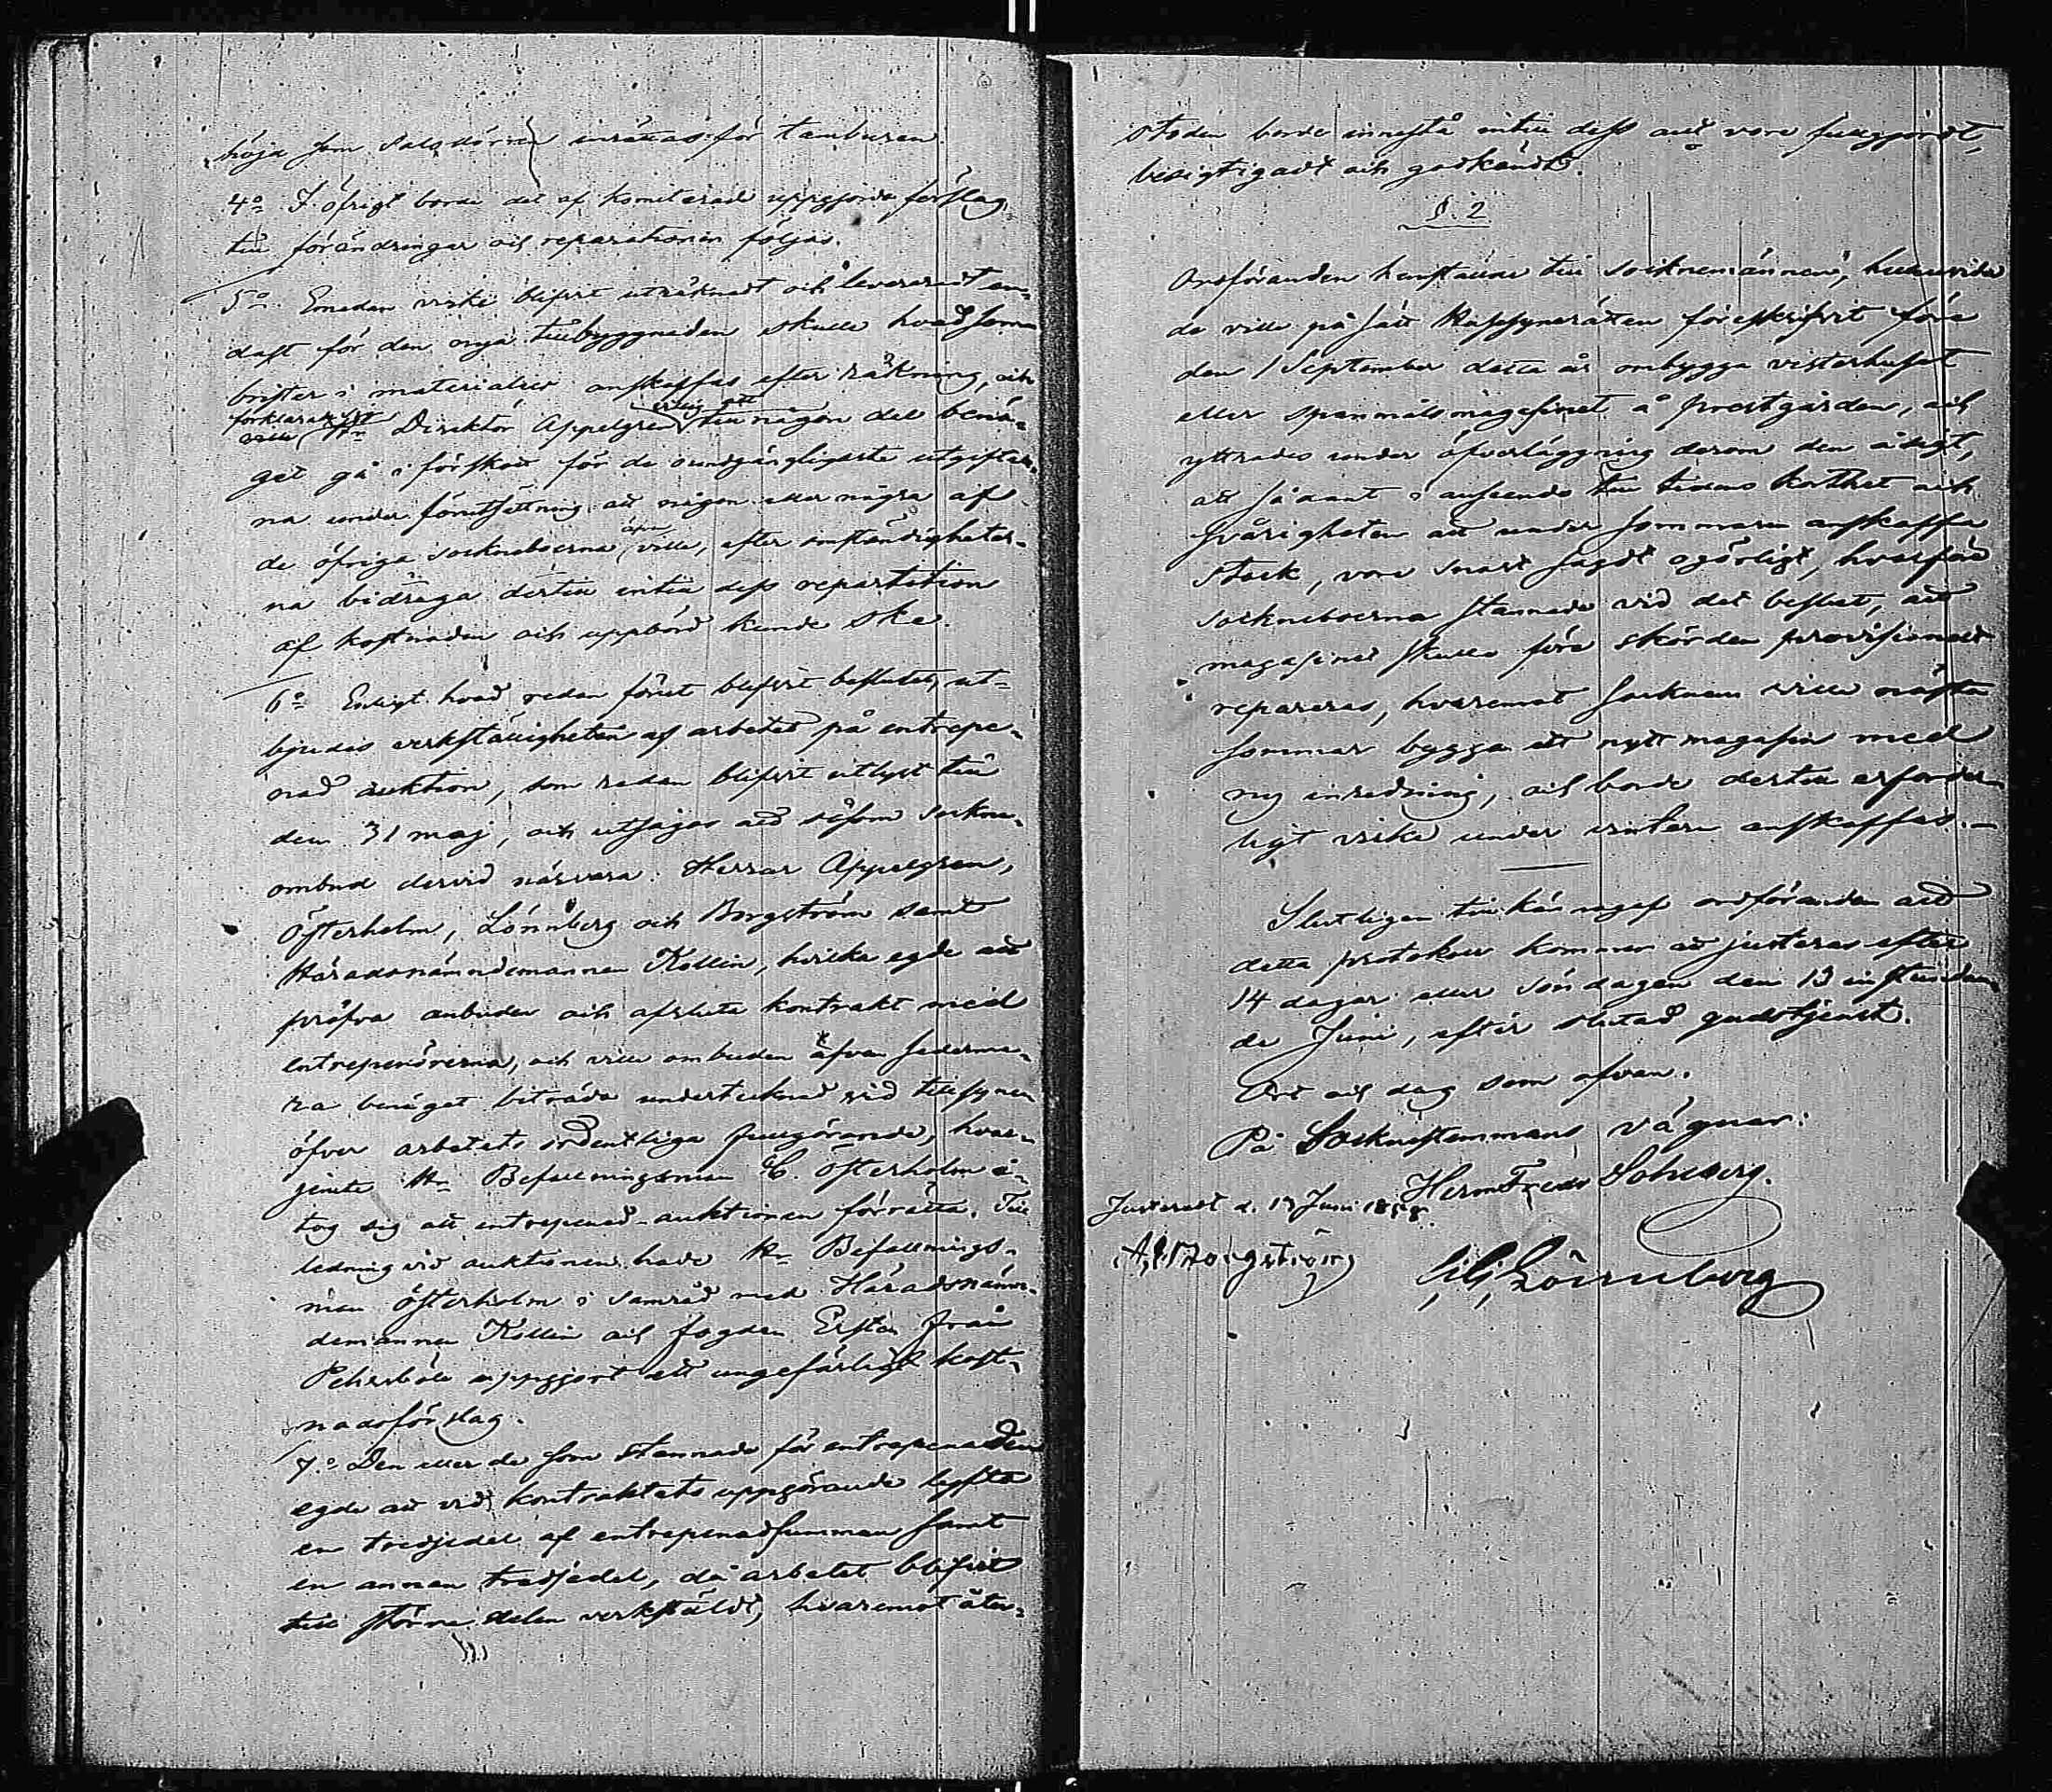 höjd som salsdörren inrättas för tamburen.
4:o I öfrigt borde det af komiterade uppgjorda förslag
till förändringar och reparationen följas.
5:o Emedan virke blifvit uträknadt och levereradt en-
dast för den nya tillbyggnaden skulle hvad som
brister i materialier anskaffas efter räkning, och
förklarade sig
ville Hr Direktör Appelgren villig att till någon del benä-
get gå i förskott för de oundgängligaste utgifter-
na under förutsättning att någon eller några af
de öfriga sockneboerna äfven ville, efter omständigheter-
na bidraga dertill intill dess repartition
af kostnaden och uppbörd kunde ske.
6:o Enligt hvad redan förut blifvit beslutet, ut-
bjudes verkställigheten af arbetet på entrepe-
nad auktion, som redan blifvit utlyst till
den 31 maj, och utsågos att såsom sockne-
ombud dervid närvara Herrar Appelgren,
Österholm, Lönnberg och Borgström samt
Häradsnämndemannen Kollin, hvilka egde att
pröfva anbuden och afsluta kontrakt med
entreprenörerna, och ville ombuden äfven sederme-
ra benäget biträda undertecknad vid tillsynen
öfver arbetets ordentliga fullgörande, hvar-
jemte Hr Befallningsman C. Österholm å-
tog sig att entrepenad-auktionen förrätta. Till
ledning vid auktionen hade Hr Befallnings-
man Österholm i samråd med Häradsnämn-
demannen Kollin och fogden Erstan från
Pehrsböle uppgjort ett ungefärligt kost-
nadsförslag.
7:o Den eller de som stannade för entrepenaden
egde att vid kontraktets uppgörande lyfta
en tredjedel af entrepenadsumman samt
en annan tredjedel, då arbetet blifvit
till större delen verkstäldt, hvaremot åter-
stoden borde innestå intill dess allt vore fullgjordt,
besigtigadt och godkändt.
§. 2
Ordföranden hemstälde till socknemännen, huruvida
de ville på sätt Hussynerätten föreskrifvit före
den 1 September detta år ombygga visterhuset
eller spanmålsmagasinet å prestgården, och
yttrades under öfverläggning derom den åsigt,
att sådant i anseende till tidens korthet och
svårigheten att under sommaren anskaffa
stock, vore snart sagdt ogörligt, hvarföre
sockneboerna stannade vid det beslut, att
magasinet skulle före skörden provisionelt
repareras, hvaremot socknen ville nästa
sommar bygga ett nytt magasin med
ny inredning, och borde dertill erforder-
ligt virke under vintern anskaffas. —
Slutligen tillkännagaf ordföranden att
detta protokoll kommer att justeras efter
14 dagar eller söndagen den 13 instundan-
de Juni, efter slutad gudstjenst.
Ort och dag som ofvan.
På Socknestemmans vägnar:
Herm Fredr Sohlberg.
Justeradt d. 13 Juni 1858.
Borgström
Lönnberg